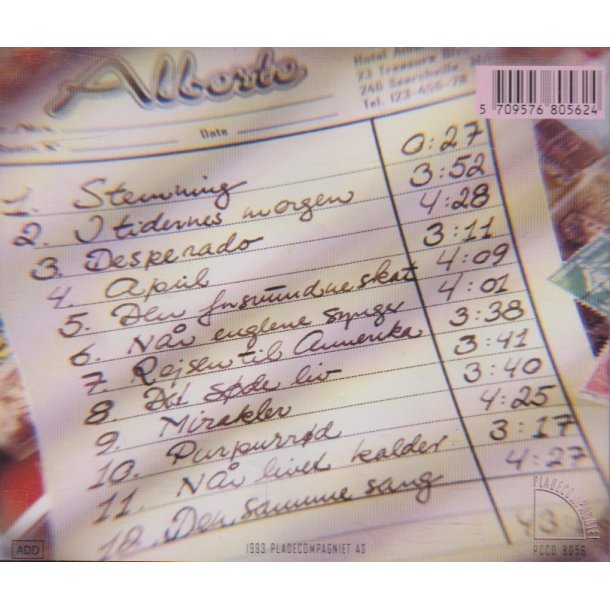 Alberto
Hotel
23 Treasure
246 Searchville
Tel. 123-456-78
Date
5 709576 805624
1. Stemning 0:27
2. I tidernes morgen 3:52
3. Desperado 4:28
4. April 3:11
5. Den forsvundne skat 4:09
6. Når englene synger 4:01
7 Rejsen til Amerika 3:38
8 Det søde liv 3:41
9. Mirakler 3:40
10. Purpurrød 4:25
11. Når livet kalder 3:17
12. Den samme sang 4:27
43
PLADECOMPAGNIET
ADD
1993 PLADECOMPAGNIET AS
PCCD 8056